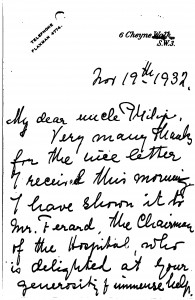 TELEPHONE
FLAXMAN 6771.
6 Cheyne Walk
S.W.3.
Nov 19th 1932.
My dear uncle Philip,
Very many thanks
for the nice letter
I received this morning
I have shown it to
Mr. Ferard, the Chairman
of the Hospital, who
is delighted at your
generosity & immense help,